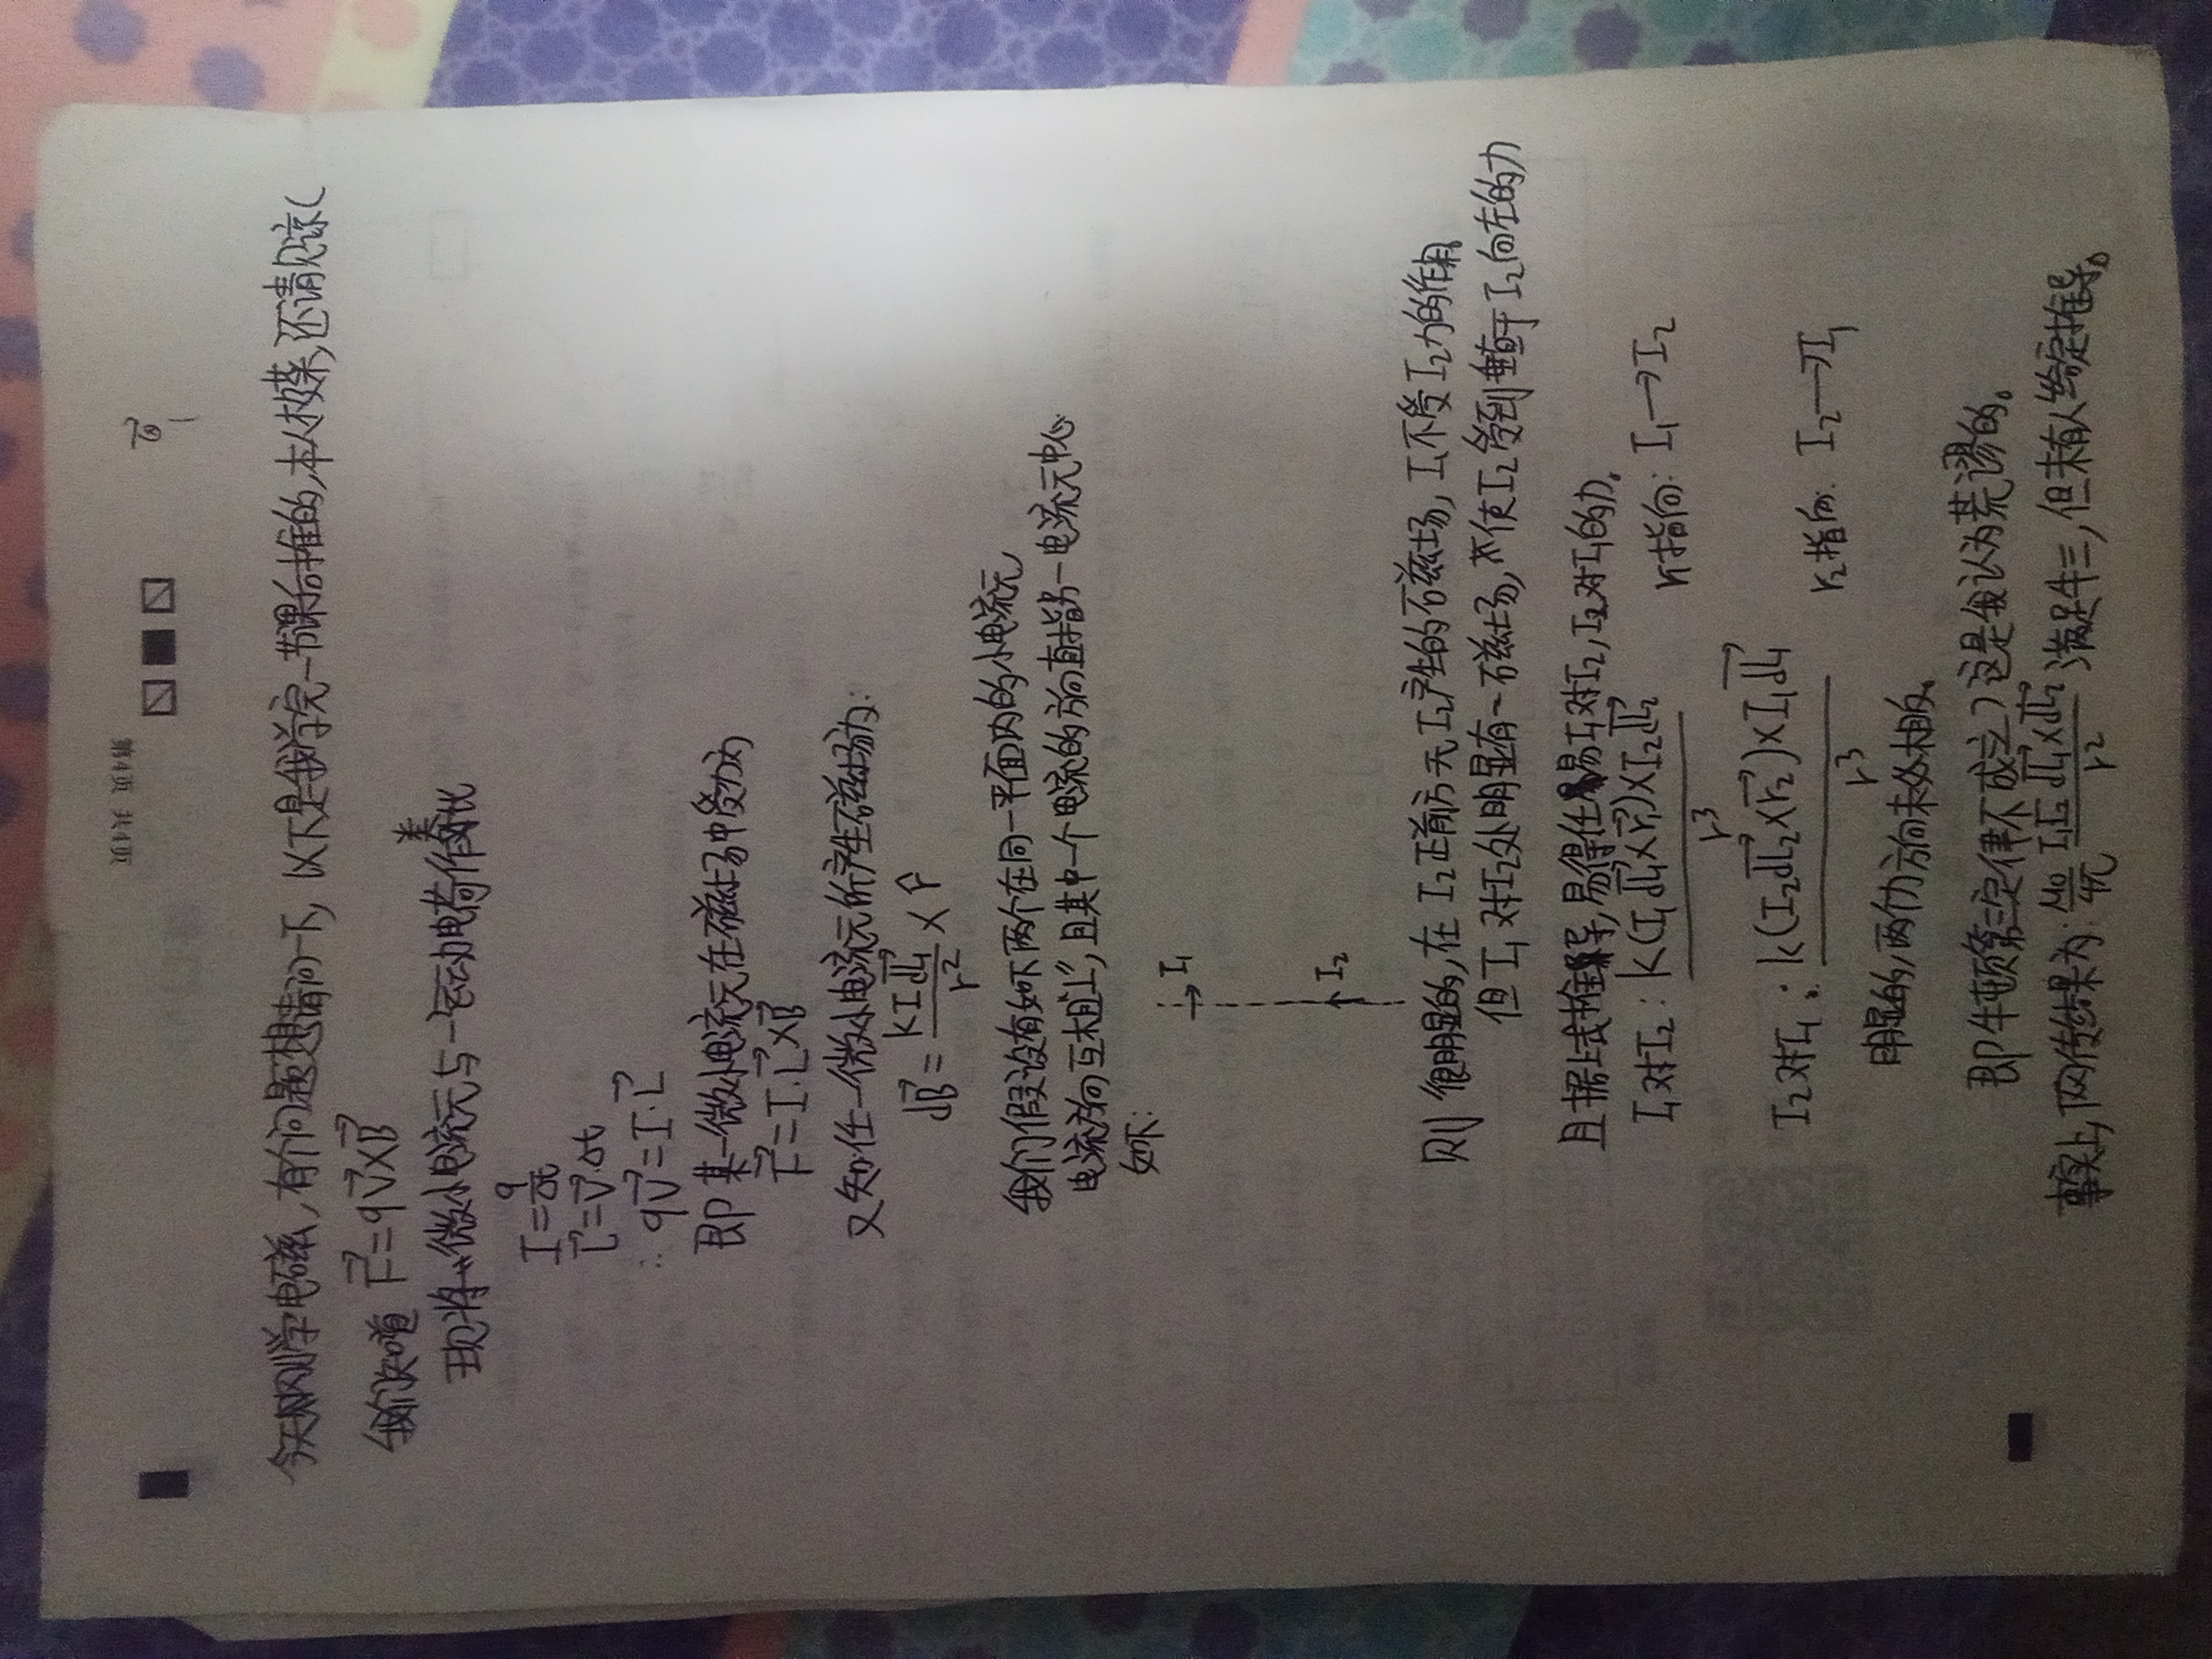 第4页 共4页
今天刚学电磁,有个问题想请问一下,以下是我学完一节课后推的,本人极菜,还请见谅(
我们知道 F=qv×B
现将一微小电流元与一运动电荷作类比
I=q/Δt
L=v·Δt
∴ qv=I·L
即某一微小电流元在磁场中受力为
F=I·L×B
又知任一微小电流元所产生磁场为:
dB=kIdl₁/r²×r̂
我们假设有如下两个在同一平面内的小电流元
电流方向互相"⊥",且其中一个电流的方向直指另一电流元中心
如下:
→I₁
↑I₂
则很明显的,在I₂正前方无I₂产生的磁场,I₁不受I₂力的作用。
但I₁对I₂处明显有一磁场,使I₂受到垂直于I₂向左的力
且据上式推导,易得任I₁对I₂,I₂对I₁的力。
I₁对I₂: k(I₁dl₁×r₁)×I₂dl₂/r³ r₁指向: I₁→I₂
I₂对I₁: k(I₂dl₂×r₂)×I₁dl₁/r³ r₂指向: I₂→I₁
明显的,两个力方向未必相反。
即牛顿第三定律不成立?这是我认为荒谬的。
事实上,网传结果为: μ₀/4π I₁I₂dl₁×dl₂/r² 满足牛三,但未有人给定推导。